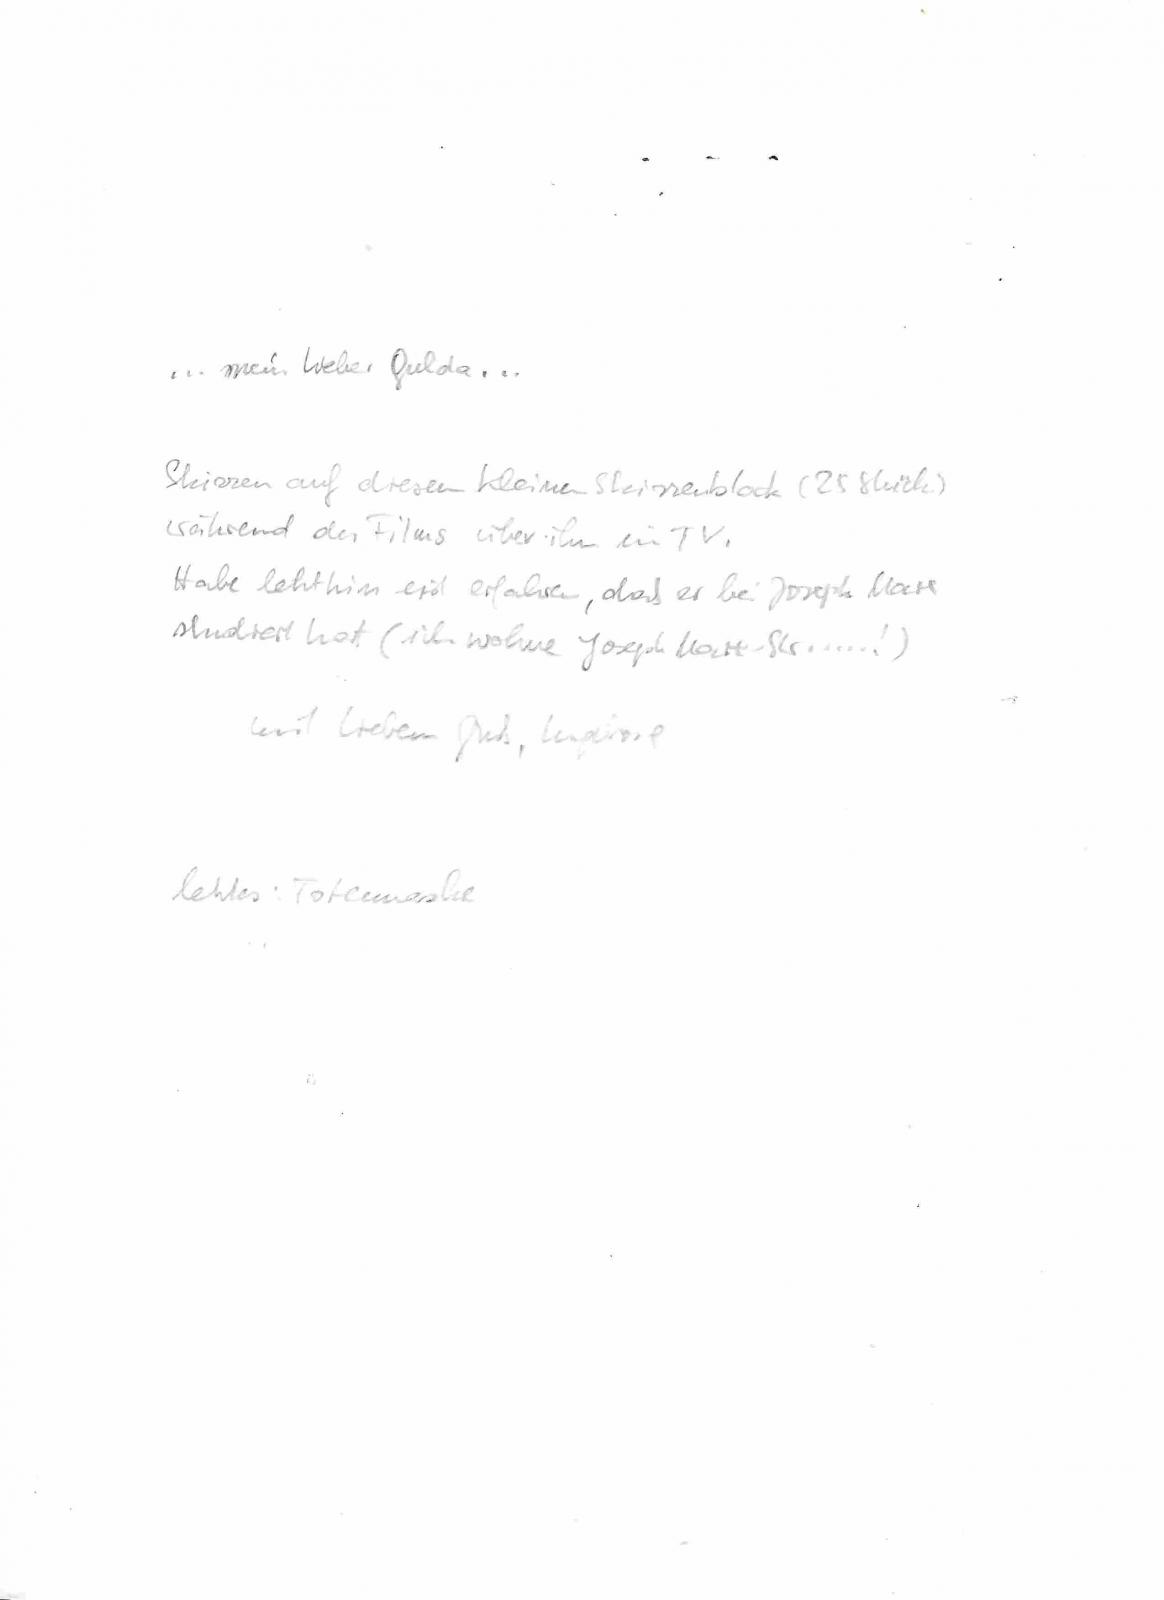 ... mein lieber Gulda...
Skizzen auf diesen kleinen Skizzenblock (25 Stück)
während des Films über ihn in TV.
Habe letzthin erst erfahren, daß er bei Joseph Marx
studiert hat (ich wohne Joseph Marx-Str......!)
mit liebem Gruß,
letztes: Totenmaske